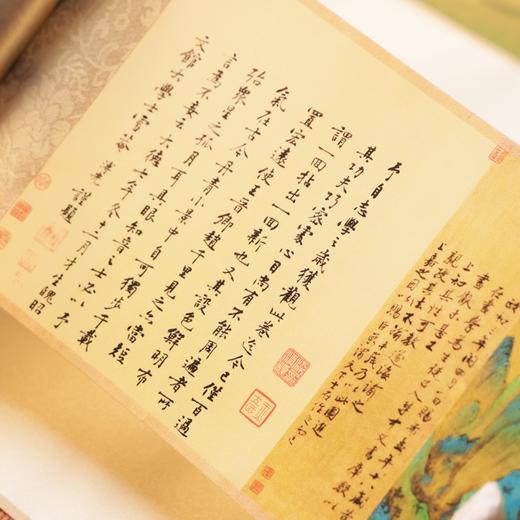 政和三年閏四月一日賜希孟年十八歲昔
在畫學為生徒召入禁中文書庫數以
畫獻未甚工
上知其性可教遂誨諭之
親授其法不踰半歲乃以此圖進
上嘉之因以賜臣京謂天下士在
予自志學之歲獲觀此卷迄今已僅百過
其功夫巧密處心目尚有不能周遍者所
謂一回拈出一回新也又其設色鮮明布
置宏遠使王晉卿趙千里見之亦當短
氣在古今丹青小景中自可獨步千載
殆眾星之孤月耳具眼知音之士必以予
言為不妄云大德七年冬十二月才生魄昭
文館大學士雪菴溥光謹題